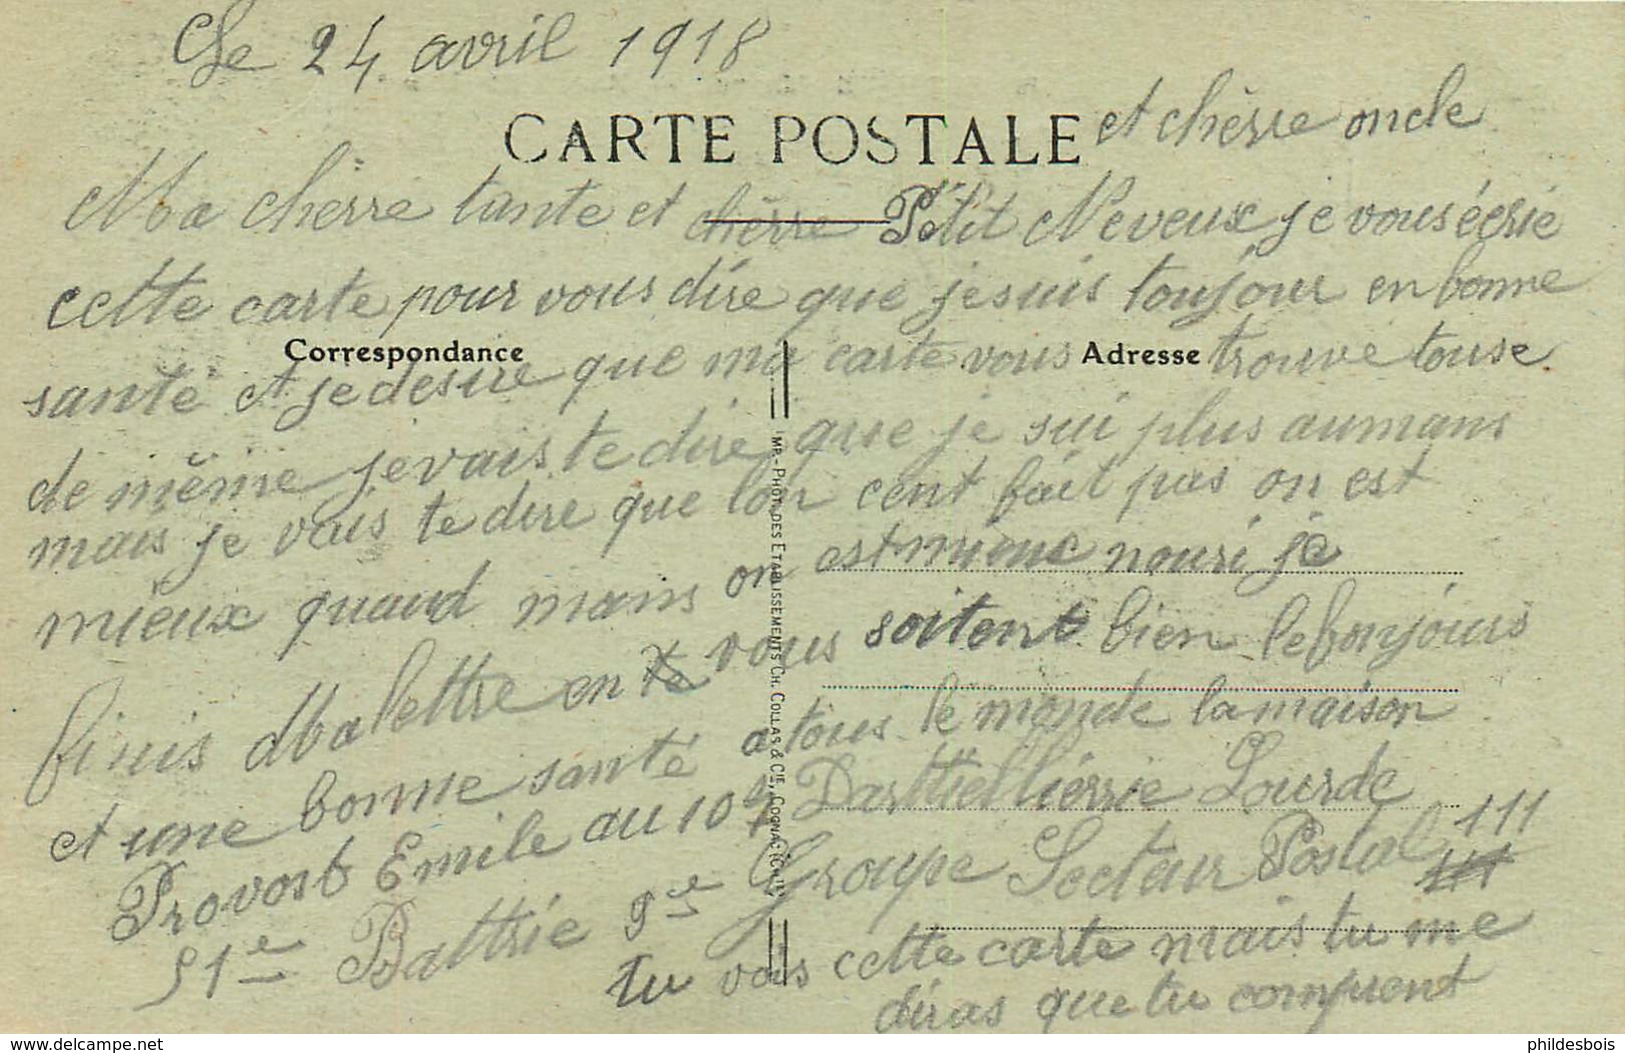 Le 24 avril 1918
CARTE POSTALE
et chèrre oncle
Ma chèrre tante et chèrre Petit Neveux je vous écrie
cette carte pour vous dire que je suis toujour en bonne
Correspondance
Adresse
santé et je desire que ma carte vous trouve touse
de même je vais te dire que je sui plus aumans
mais je vais te dire que lon cent fait pas on est
mieux quand mans on est mieux nouri je
finis Ma lettre en te vous soitent bien le bonjours
et une bonne santé a tous le monde la maison
Provost Emile au 109 Darttielliérrie Lourde
51e Battrie 9e Groupe Secteur Postal 111
tu vois cette carte mais tu me
diras que tu comprent
MP.- PHOT. DES ETABLISSEMENTS CH. COLLAS & CIE, COGNAC
www.delcampe.net
phildesbois